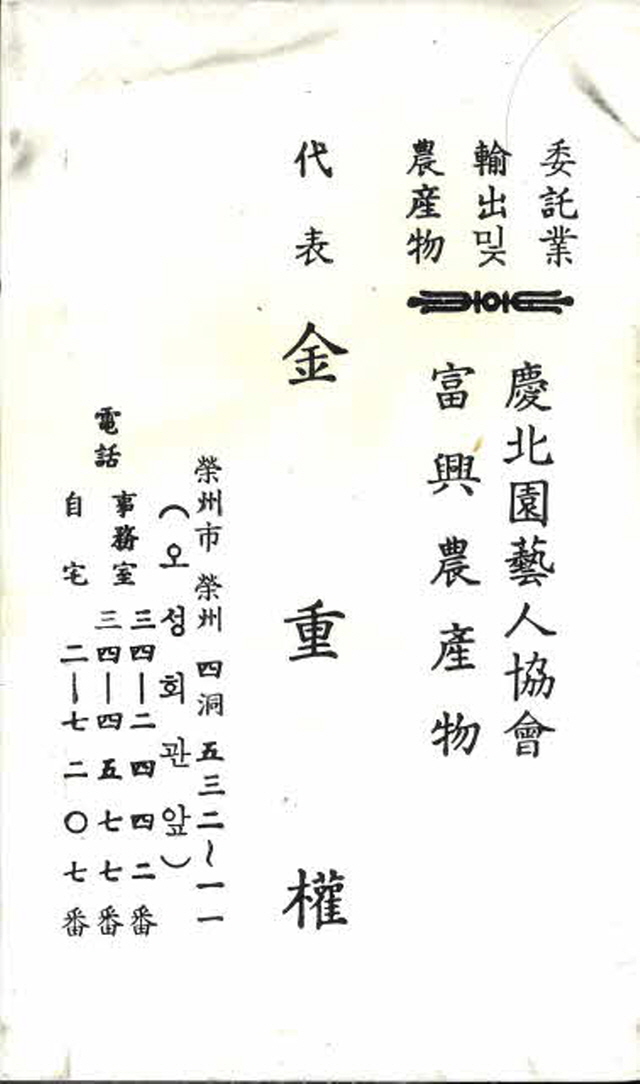 農産物
輸出및
委託業
慶北園藝人協會
富興農産物
代表 金重權
榮州市 榮州四洞 五三二~一一
(오성회관앞)
電話
事務室 三四—二四四二番
三四—四五七七番
自宅 二—七二〇七番